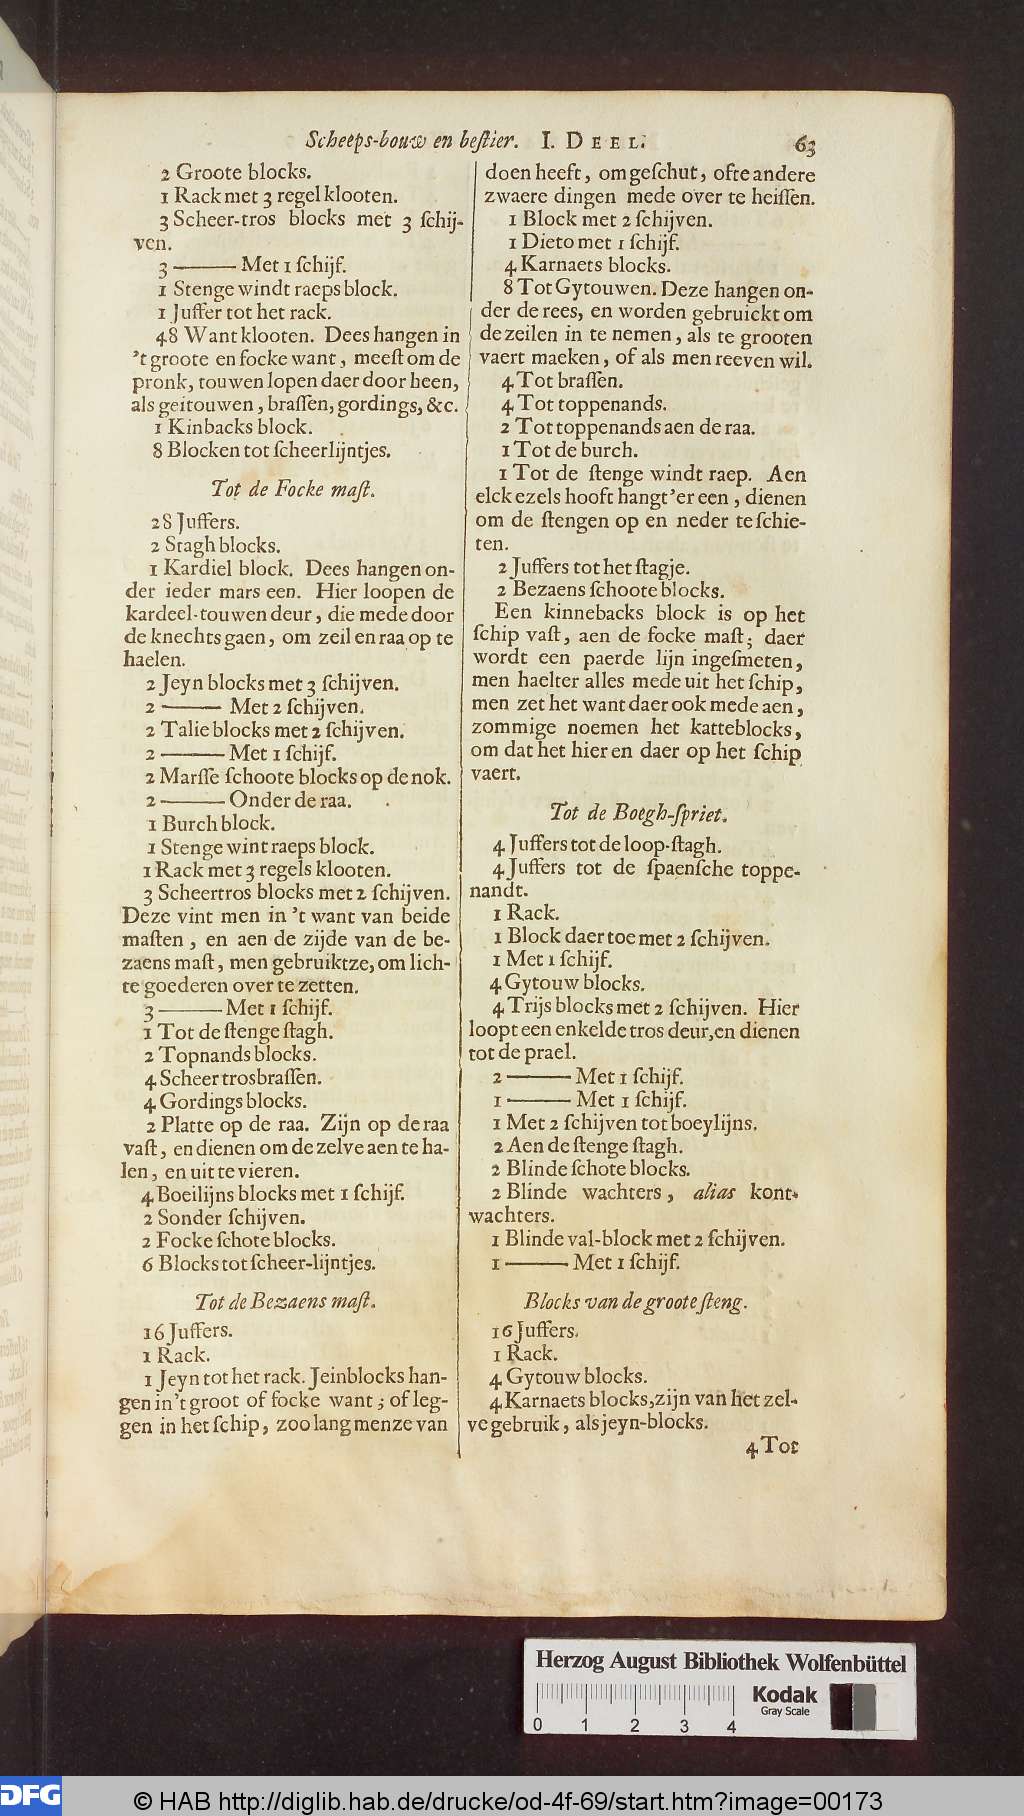 Scheeps-bouw en beſtier. I. DEEL. 63
2 Groote blocks.
1 Rack met 3 regel klooten.
3 Scheer-tros blocks met 3 ſchij-
ven.
3 ——— Met 1 ſchijf.
1 Stenge windt raeps block.
1 Juffer tot het rack.
48 Want klooten. Dees hangen in
't groote en focke want, meeſt om de
pronk, touwen lopen daer door heen,
als geitouwen, braſſen, gordings, &c.
1 Kinbacks block.
8 Blocken tot ſcheerlijntjes.
Tot de Focke maſt.
28 Juffers.
2 Stagh blocks.
1 Kardiel block. Dees hangen on-
der ieder mars een. Hier loopen de
kardeel-touwen deur, die mede door
de knechts gaen, om zeil en raa op te
haelen.
2 Jeyn blocks met 3 ſchijven.
2 ——— Met 2 ſchijven.
2 Talie blocks met 2 ſchijven.
2 ——— Met 1 ſchijf.
2 Marſſe ſchoote blocks op de nok.
2 ——— Onder de raa.
1 Burch block.
1 Stenge wint raeps block.
1 Rack met 3 regels klooten.
3 Scheertros blocks met 2 ſchijven.
Deze vint men in 't want van beide
maſten, en aen de zijde van de be-
zaens maſt, men gebruiktze, om lich-
te goederen over te zetten.
3 ——— Met 1 ſchijf.
1 Tot de ſtenge ſtagh.
2 Topnands blocks.
4 Scheer trosbraſſen.
4 Gordings blocks.
2 Platte op de raa. Zijn op de raa
vaſt, en dienen om de zelve aen te ha-
len, en uit te vieren.
4 Boeilijns blocks met 1 ſchijf.
2 Sonder ſchijven.
2 Focke ſchote blocks.
6 Blocks tot ſcheer-lijntjes.
Tot de Bezaens maſt.
16 Juffers.
1 Rack.
1 Jeyn tot het rack. Jeinblocks han-
gen in 't groot of focke want; of leg-
gen in het ſchip, zoo lang men ze van
doen heeft, om geſchut, ofte andere
zwaere dingen mede over te heiſſen.
1 Block met 2 ſchijven.
1 Dieto met 1 ſchijf.
4 Karnaets blocks.
8 Tot Gytouwen. Deze hangen on-
der de rees, en worden gebruickt om
de zeilen in te nemen, als te grooten
vaert maeken, of als men reeven wil.
4 Tot braſſen.
4 Tot toppenands.
2 Tot toppenands aen de raa.
1 Tot de burch.
1 Tot de ſtenge windt raep. Aen
elck ezels hooft hangt'er een, dienen
om de ſtengen op en neder te ſchie-
ten.
2 Juffers tot het ſtagje.
2 Bezaens ſchoote blocks.
Een kinnebacks block is op het
ſchip vaſt, aen de focke maſt; daer
wordt een paerde lijn ingeſmeten,
men haelter alles mede uit het ſchip,
men zet het want daer ook mede aen,
zommige noemen het katteblocks,
om dat het hier en daer op het ſchip
vaert.
Tot de Boegh-ſpriet.
4 Juffers tot de loop-ſtagh.
4 Juffers tot de ſpaenſche toppe-
nandt.
1 Rack.
1 Block daer toe met 2 ſchijven.
1 Met 1 ſchijf.
4 Gytouw blocks.
4 Trijs blocks met 2 ſchijven. Hier
loopt een enkelde tros deur, en dienen
tot de prael.
2 ——— Met 1 ſchijf.
1 ——— Met 1 ſchijf.
1 Met 2 ſchijven tot boeylijns.
2 Aen de ſtenge ſtagh.
2 Blinde ſchote blocks.
2 Blinde wachters, alias kont-
wachters.
1 Blinde val-block met 2 ſchijven.
1 ——— Met 1 ſchijf.
Blocks van de groote ſteng.
16 Juffers.
1 Rack.
4 Gytouw blocks.
4 Karnaets blocks, zijn van het zel-
ve gebruik, als jeyn-blocks.
4 Tot
Herzog August Bibliothek Wolfenbüttel
Kodak
Gray Scale
0 1 2 3 4
DFG © HAB http://diglib.hab.de/drucke/od-4f-69/start.htm?image=00173